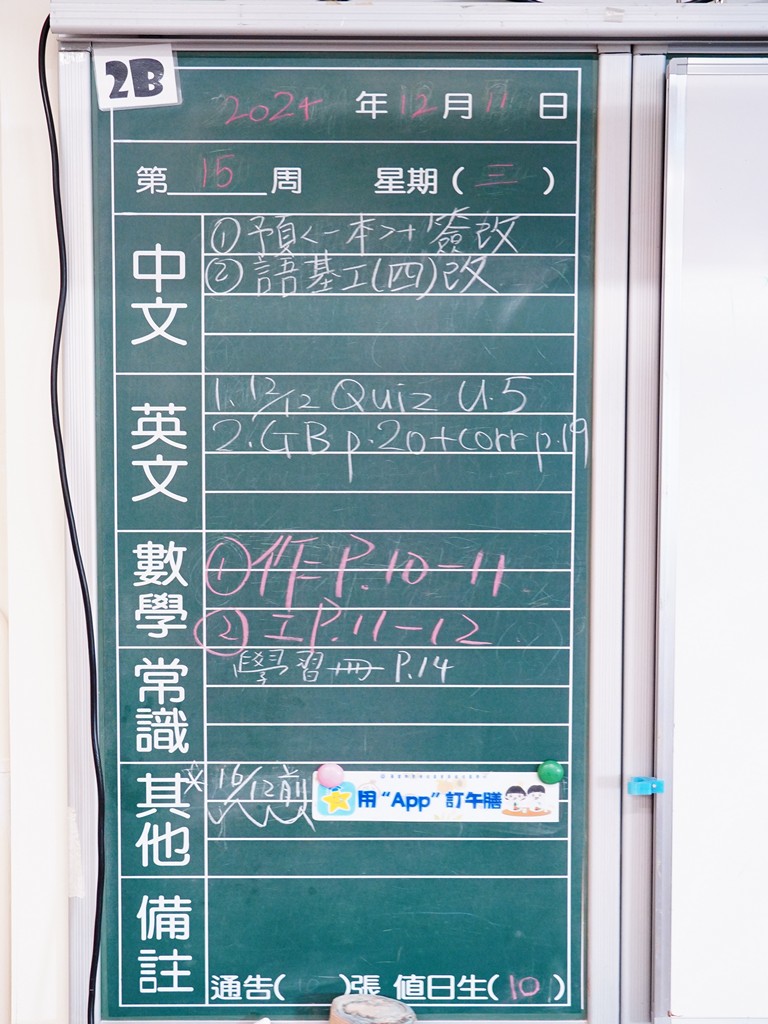 2B
2024 年 12 月 11 日
第 15 周 星期 ( 三 )
中文
① 預<一本>+簽改
② 語基工(四)改
英文
1. 12/12 Quiz U.5
2. GB p.20+corr p.19
數學
① 作= P.10-11
② 工 P.11-12
常識
學習冊 P.14
其他
* 16/12前
用 “App” 訂午膳
備註
通告( )張 值日生( 10 )